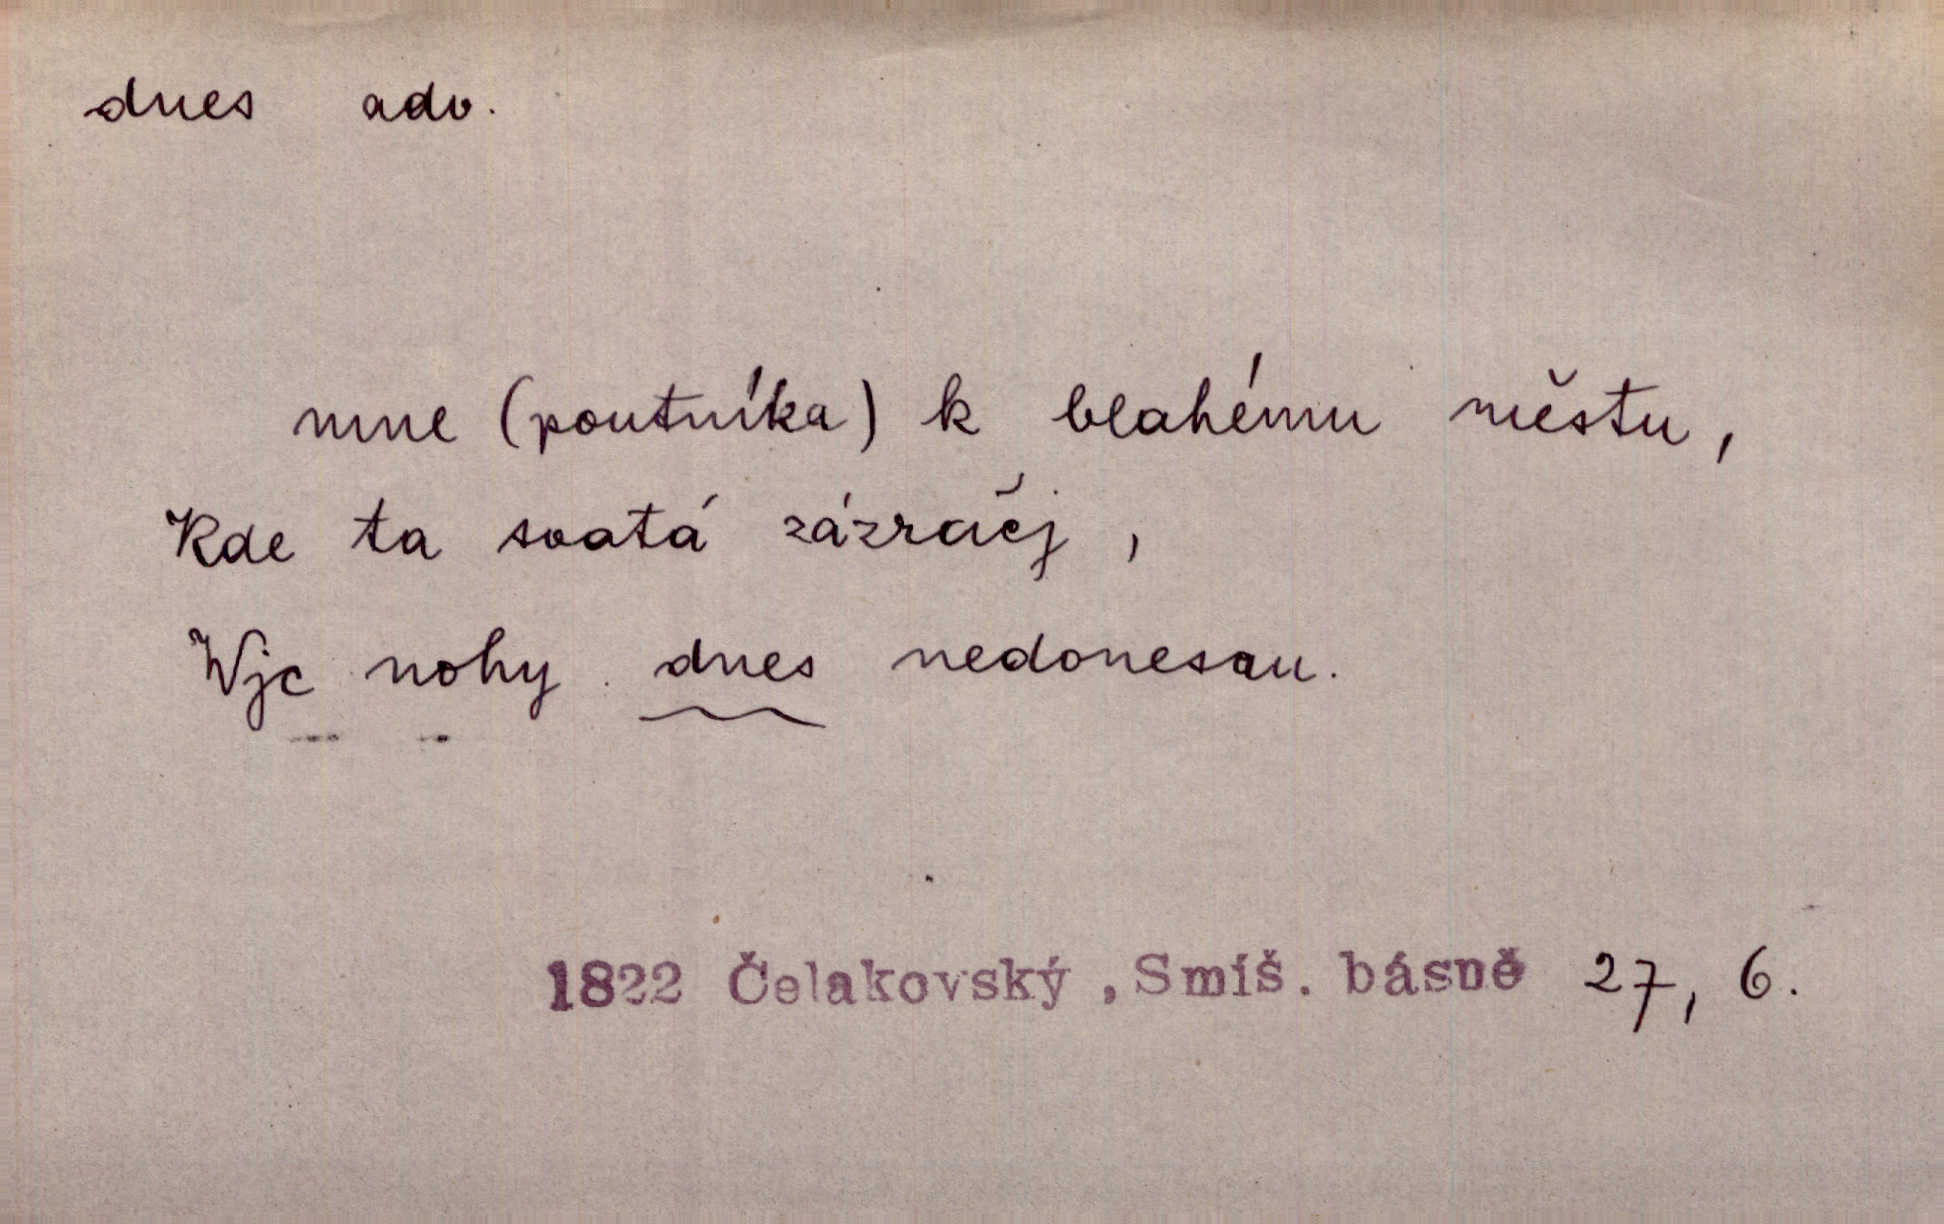 dnes adv.
mne (poutníka) k blahému městu,
Kde ta svatá zázračj,
Wjc nohy dnes nedonesau.
1822 Čelakovský, Smíš. básně 27, 6.